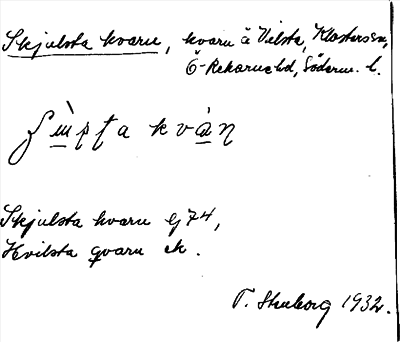 Skjulsta kvarn, kvarn å Vilsta, Klosters sn,
Ö-Rekarne hd, Söderm. l.
Skjulsta kvarn GJ 74,
Hvilsta qvarn ek.
T. Stenborg 1932.